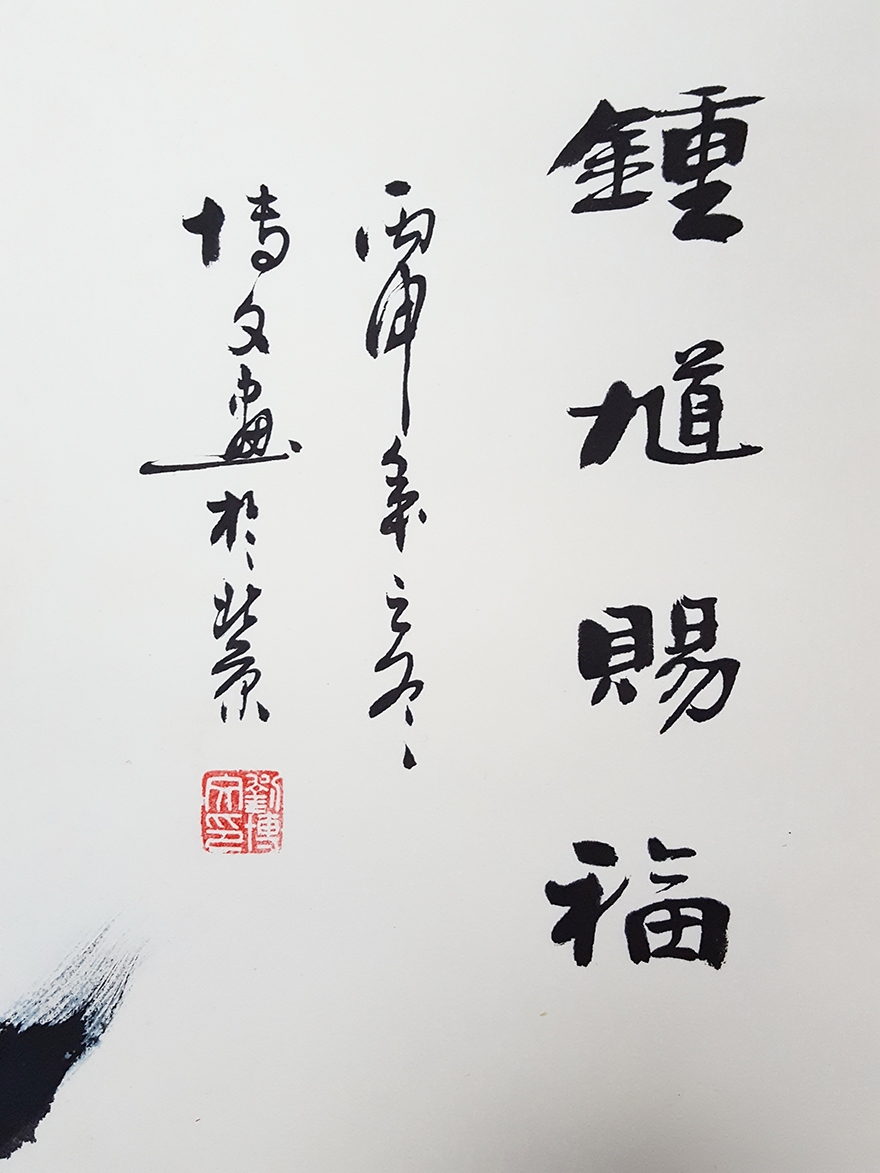 鍾馗賜福
丙申年之冬
博文畫於北京
劉博文印